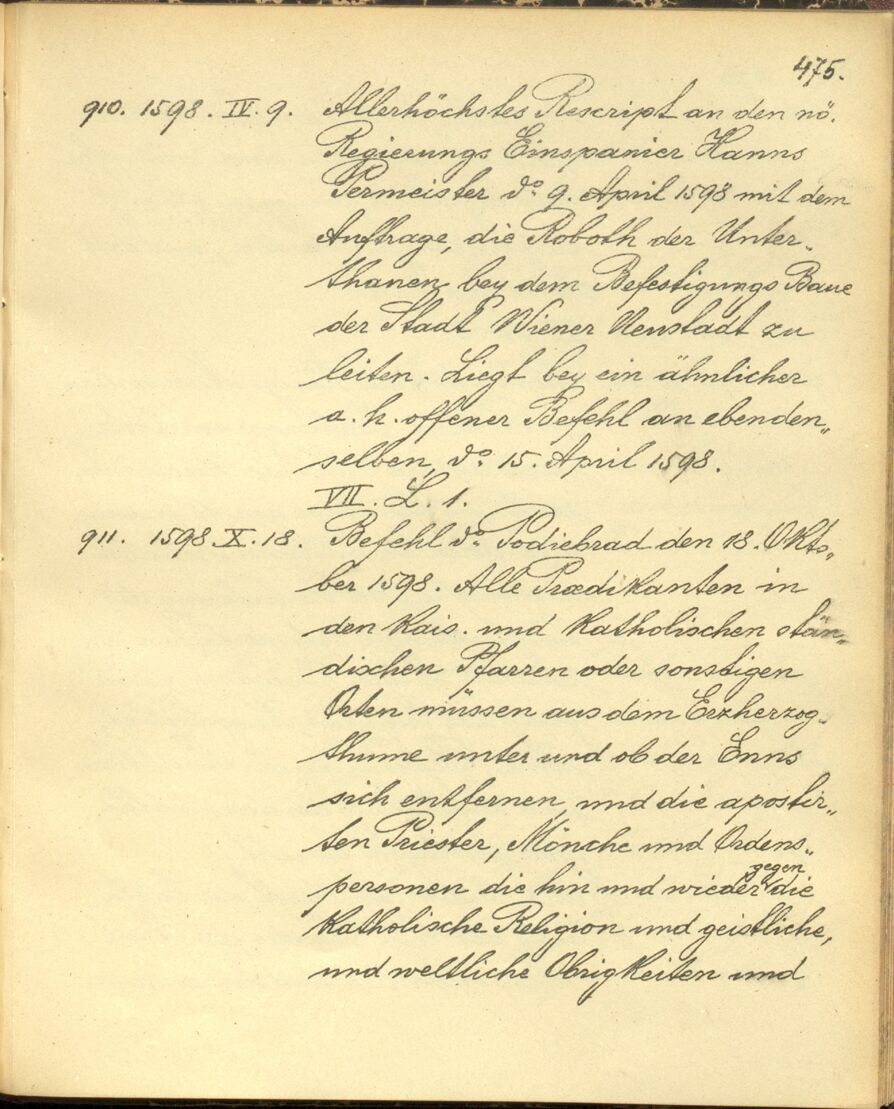 475.
910. 1598. IV. 9. Allerhöchstes Rescript an den nö.
Regierungs Einspanier Hanns
Permeister do. 9. April 1598 mit dem
Auftrage, die Roboth der Unter-
thanen bey dem Befestigungs Baue
der Stadt Wiener Neustadt zu
leiten. Liegt bey ein ähnlicher
a. h. offener Befehl an ebenden„
selben, do. 15. April 1598.
VII. L. 1.
911. 1598. X. 18. Befehl do. Podiebrad den 18. Okto„
ber 1598. Alle Prædikanten in
den Kais. und Katholischen stän„
dischen Pfarren oder sonstigen
Orten müssen aus dem Erzherzog„
thume unter und ob der Enns
sich entfernen, und die apostir„
ten Priester, Mönche und Ordens„
personen die hin und wieder gegen die
Katholische Religion und geistliche,
und weltliche Obrigkeiten und